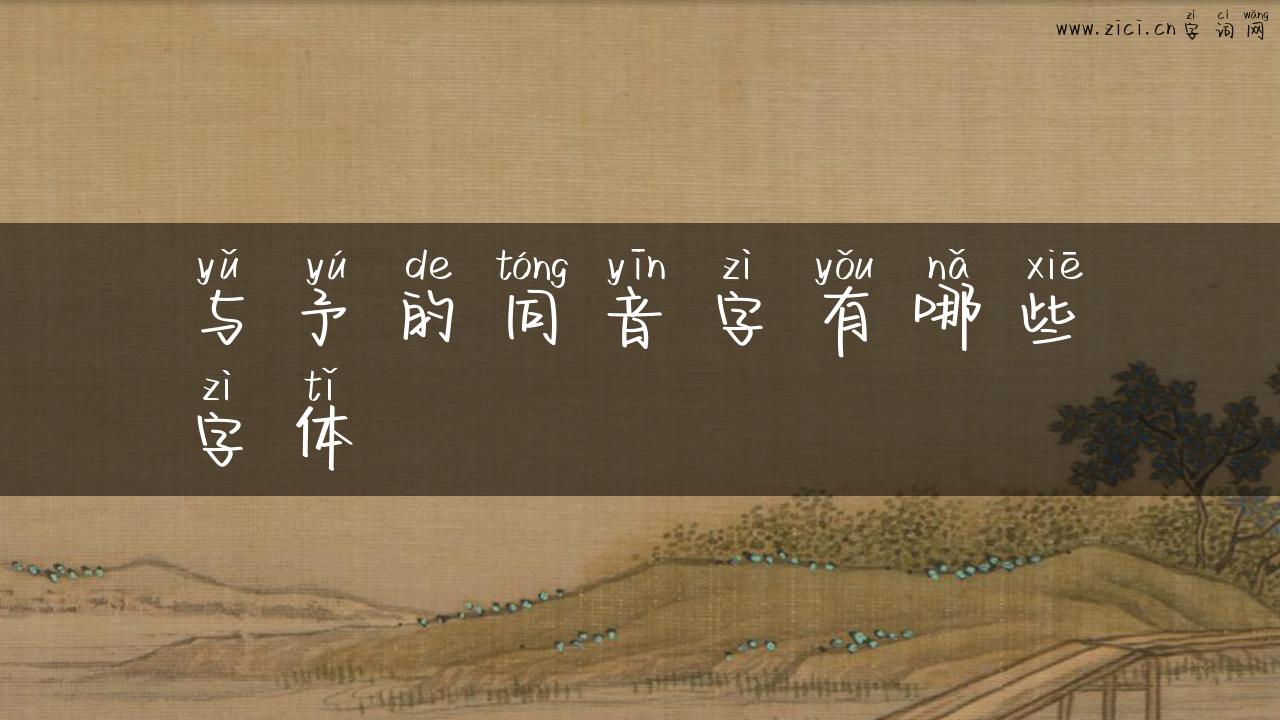 zì cí wǎng
www.zici.cn字词网
yǔ yú de tóng yīn zì yǒu nǎ xiē
与予的同音字有哪些
zì tǐ
字体